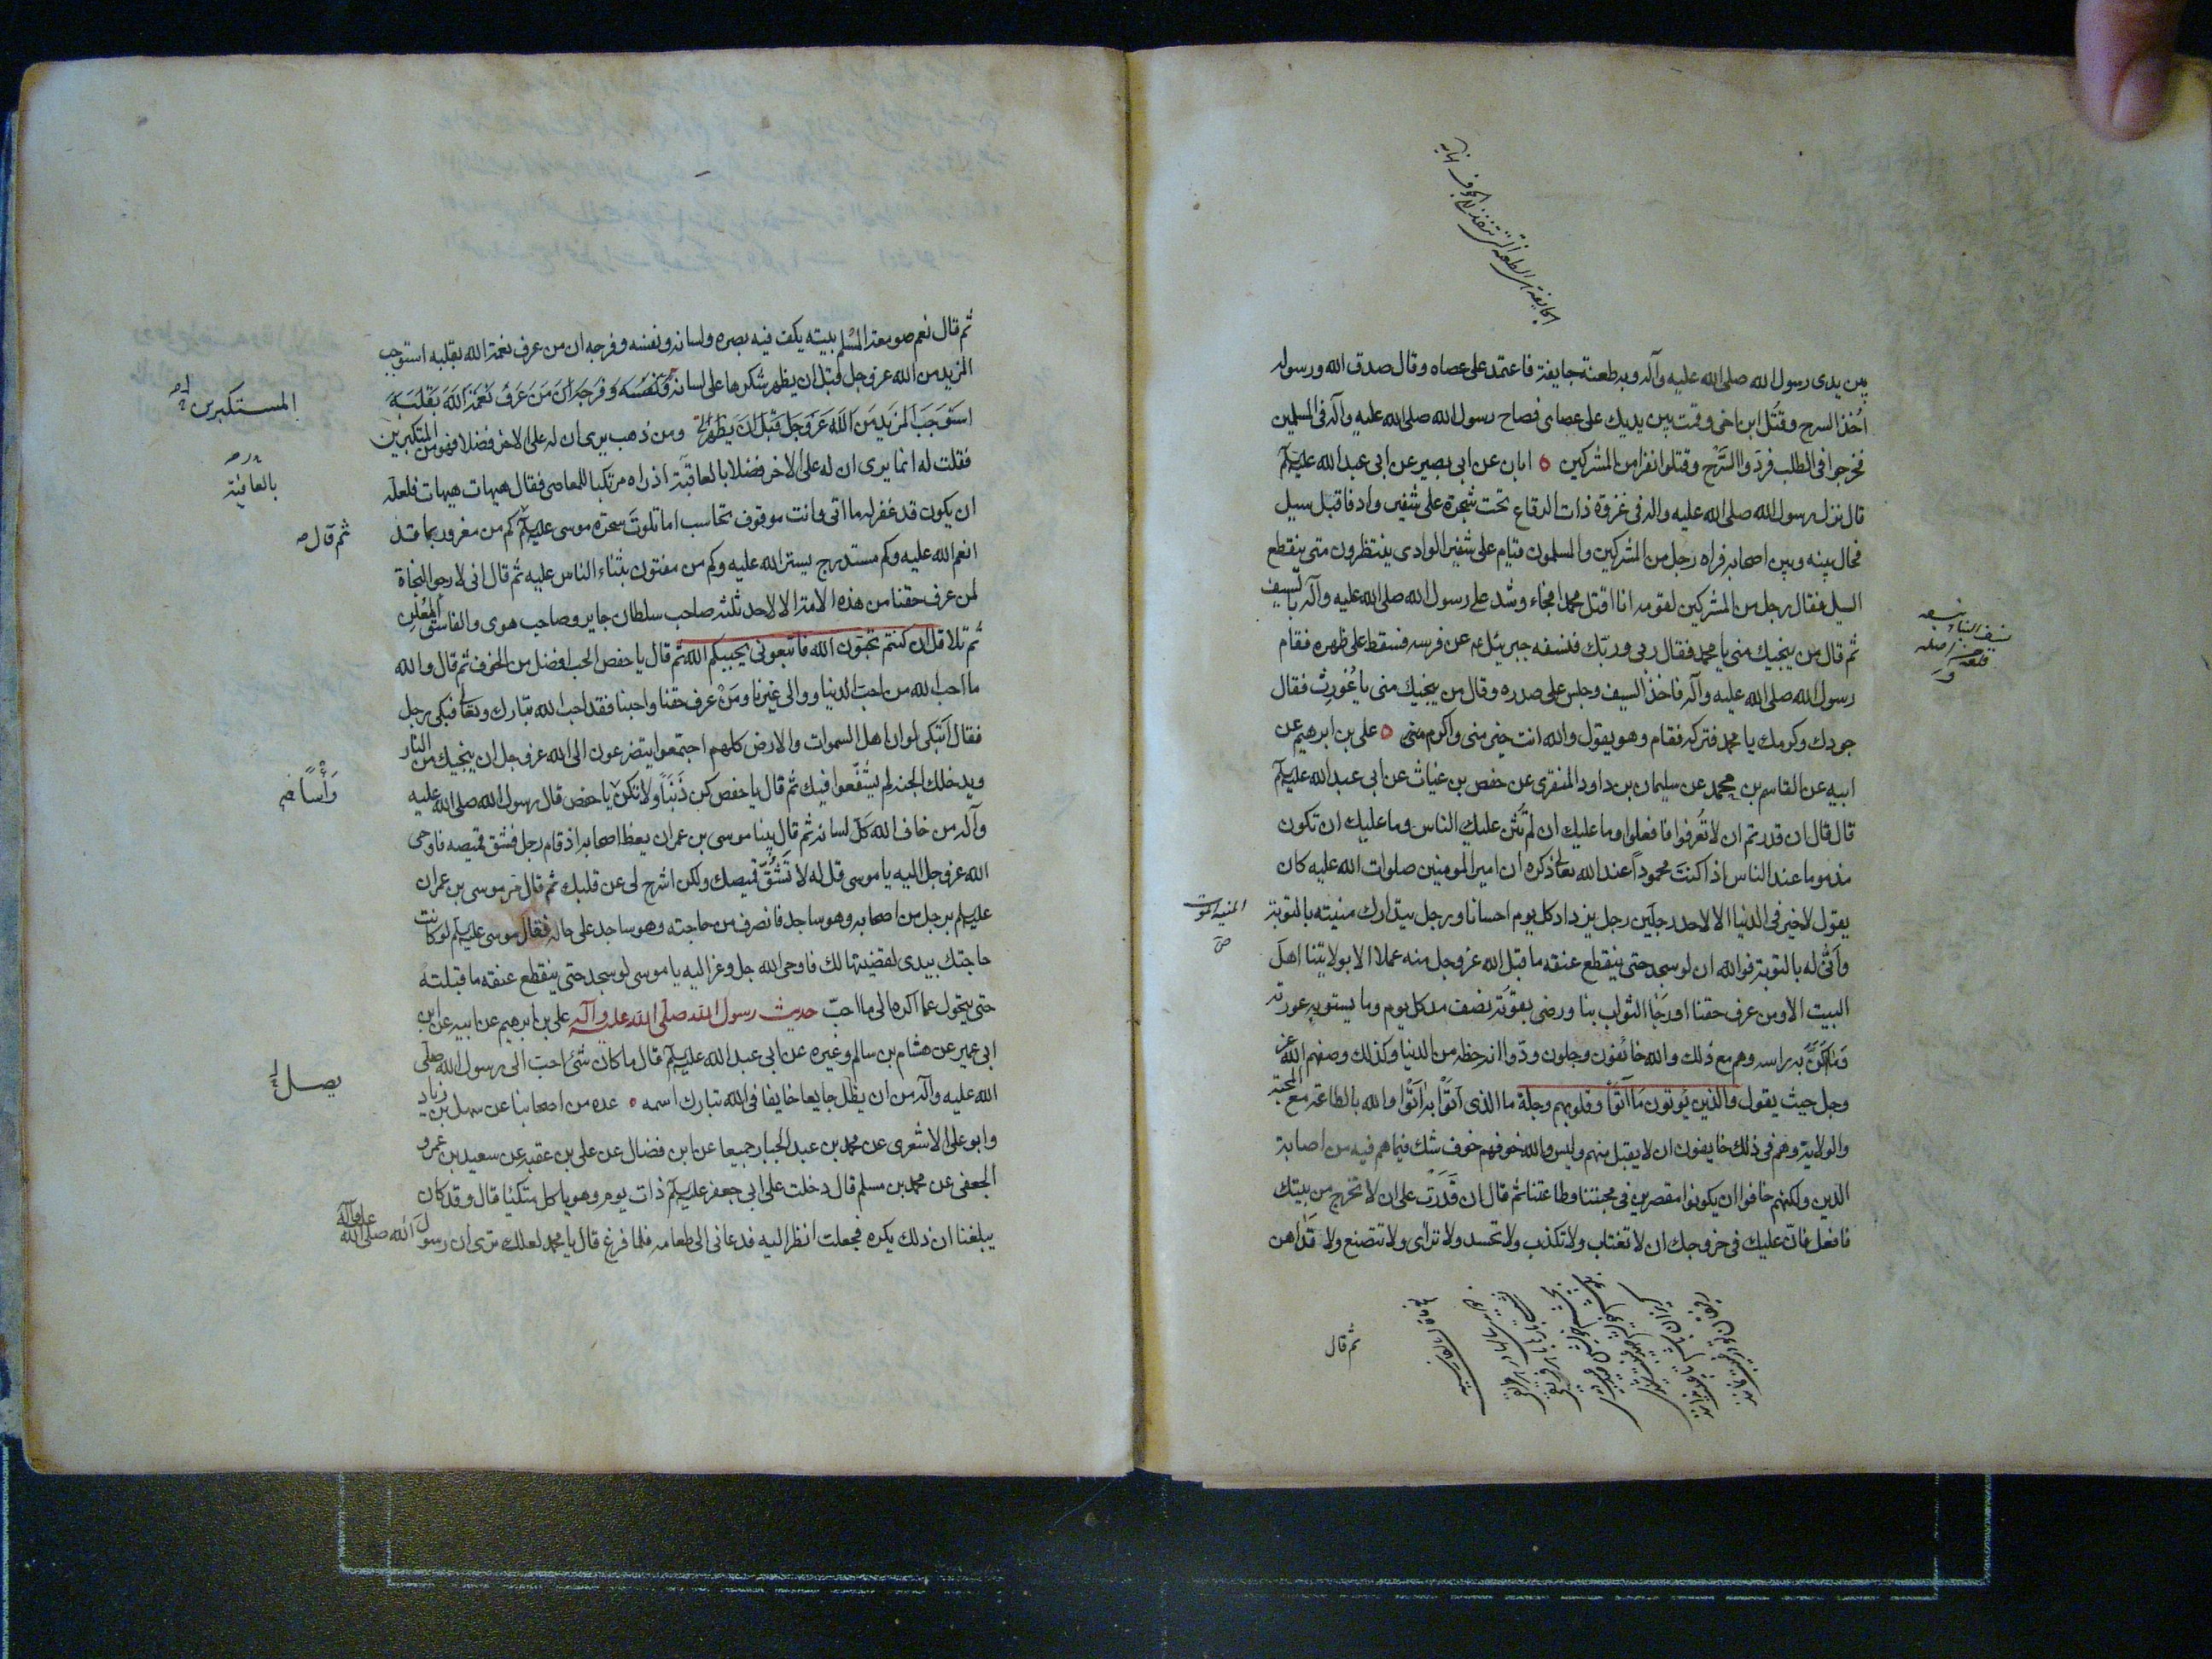 بين يدى رسول الله صلى الله عليه وآله وبه طعنة جايفة فاعتمد على عصاه وقال صدق الله ورسوله
اُخذ السرح وقُتل ابن اخى وقمت بين يديك على عصاى فصاح رسول الله صلى الله عليه وآله فى المسلمين
فخرجوا فى الطلب فردّوا السَّرح وقتلوا نفرا من المشركين ٥ ابان عن ابى بصير عن ابى عبد الله عليه السلم
قال نزل رسول الله صلى الله عليه واله فى غزوة ذات الرقاع تحت شجرة على شفير واد فاقبل سيل
فحال بينه وبين اصحابه فراه رجل من المشركين والمسلمون قيام على شفير الوادى ينتظرون متى ينقطع
السيل فقال رجل من المشركين لقومه انا اقتل محمدا فجاء وشد على رسول الله صلى الله عليه وآله بالسيف
ثم قال من ينجيك منى يا محمد فقال ربى وربك فنسفه جبرئيل ع عن فرسه فسقط على ظهره فقام
رسول الله صلى الله عليه وآله فاخذ السيف وجلس على صدره وقال من ينجيك منى يا غُورث فقال
جودك وكرمك يا محمد فتركه فقام وهو يقول والله انت خير منى واكرم منى ٥ على بن ابرهيم عن
ابيه عن القاسم بن محمد عن سليمان بن داود المنقرى عن حفص بن غياث عن ابى عبد الله عليه السلم
قال قال ان قدرتم ان لا تُعرفوا فافعلوا وما عليك ان لم يُثن عليك الناس وما عليك ان تكون
مذموما عند الناس اذا كنت محموداً عند الله تعالى ذكره ان امير المومنين صلوات الله عليه كان
يقول لا خير فى الدنيا الا لاحد رجلين رجل يزداد كل يوم احسانا ورجل يتدارك منيته بالتوبة
وأنّى له بالتوبة فوالله ان لو سجد حتى ينقطع عنقه ما قبل الله عز وجل منه عملا الا بولايتنا اهل
البيت الا ومن عرف حقنا اورجا الثواب بنا ورضى بقوته نصف مد كل يوم وما يستر به عورته
وما اكنّ به راسه وهم مع ذلك والله خائفون وجلون ودّوا انه حظه من الدنيا وكذلك وصفهم الله عز
وجل حيث يقول والذين يُوتون ما آتوا وقلوبهم وجلة ما الذى أتوا به أتوا والله بالطاعة مع المحبة
والولاية وهم فى ذلك خايفون ان لا يقبل منهم وليس والله خوفهم خوف شك فيما هم فيه من اصابة
الدين ولكنهم خافوا ان يكونوا مقصرين فى محبتنا وطاعتنا ثم قال ان قَدَرت على ان لا تخرج من بيتك
فافعل فانّ عليك فى خروجك ان لا تغتاب ولا تكذب ولا تحسد ولا ترائى ولا تتصنع ولا تداهن
ثم قال
ثم قال نعم صومعة المسلم بيته يكف فيه بصره ولسانه ونفسه وفرجه ان من عرف نعمة الله بقلبه استوجب
المزيد من الله عز وجل قبل ان يظهر شكرها على لسانه وَنَفْسَه وَفَرجه ان مَن عَرف نعمة الله بقلبه
استوجب المزيد من الله عز وجل قبل ان يظهر ومن ذهب يرى ان له على الاخر فضلا فهو من المتكبرين
المستكبرين
فقلت له انما يرى ان له على الاخر فضلا بالعاقبة اذ راه مرتكبا للمعاصى فقال هيهات هيهات فلعله
بالعافية
ان يكون قد غفر له ما اتى وانت موقوف تحاسب اما تلوت سحرة موسى عليه السلم كم من مغرور بما قد
ثم قال
انعم الله عليه وكم مستدرج يستر الله عليه وكم من مفتون بثناء الناس عليه ثم قال انى لارجو النجاة
لمن عرف حقنا من هذه الامة الا لاحد ثلثة صاحب سلطان جاير وصاحب هوى والفاسق المُعلن
ثم تلا قل ان كنتم تحبون الله فاتبعونى يحببكم الله ثم قال يا حفص الحب افضل من الخوف ثم قال والله
ما احب الله من احب الدنيا ووالى غيرنا ومَن عرف حقنا واحبنا فقد احب الله تبارك وتعالى فبكى رجل
فقال أتبكى لو ان اهل السموات والارض كلهم اجتمعوا يتضرعون الى الله عز وجل ان ينجيك من النار
ويدخلك الجنة لم يُشفّعوا فيك ثم قال يا حفص كن ذَنَبًا ولا تكن يا حفص قال رسول الله صلى الله عليه
رَأْسًا
وآله من خاف الله كلّ لسانه ثم قال بينا موسى بن عمران يعظ اصحابه اذ قام رجل فشق قميصه فاوحى
الله عز وجل اليه يا موسى قل له لا تَشُقّ قميصك ولكن اشرح لى عن قلبك ثم قال مر موسى بن عمران
عليه السلم برجل من اصحابه وهو ساجد فانصرف من حاجته وهو ساجد على حاله فقال موسى عليه السلم لو كانت
حاجتك بيدى لقضيتها لك فاوحى الله جل وعز اليه يا موسى لو سجد حتى ينقطع عنقه ما قبلته
حتى يتحول عما اكره الى ما احبّ حديث رسول الله صلى الله عليه وآله على بن ابرهيم عن ابيه عن ابن
ابى عمير عن هشام بن سالم وغيره عن ابى عبد الله عليه السلم قال ما كان شئ احب الى رسول الله صلى
الله عليه وآله من ان يظل جايعا خايفا فى الله تبارك اسمه ٥ عده من اصحابنا عن سهل بن زياد
يصل
وابو على الاشعرى عن محمد بن عبد الجبار جميعا عن ابن فضال عن على بن عقبه عن سعيد بن عمرو
الجعفى عن محمد بن مسلم قال دخلت على ابى جعفر عليه السلم ذات يوم وهو ياكل متكئا قال وقد كان
يبلغنا ان ذلك يكره فجعلت انظر اليه فدعانى الى طعامه فلما فرغ قال يا محمد لعلك ترى ان رسول الله صلى الله عليه وآله